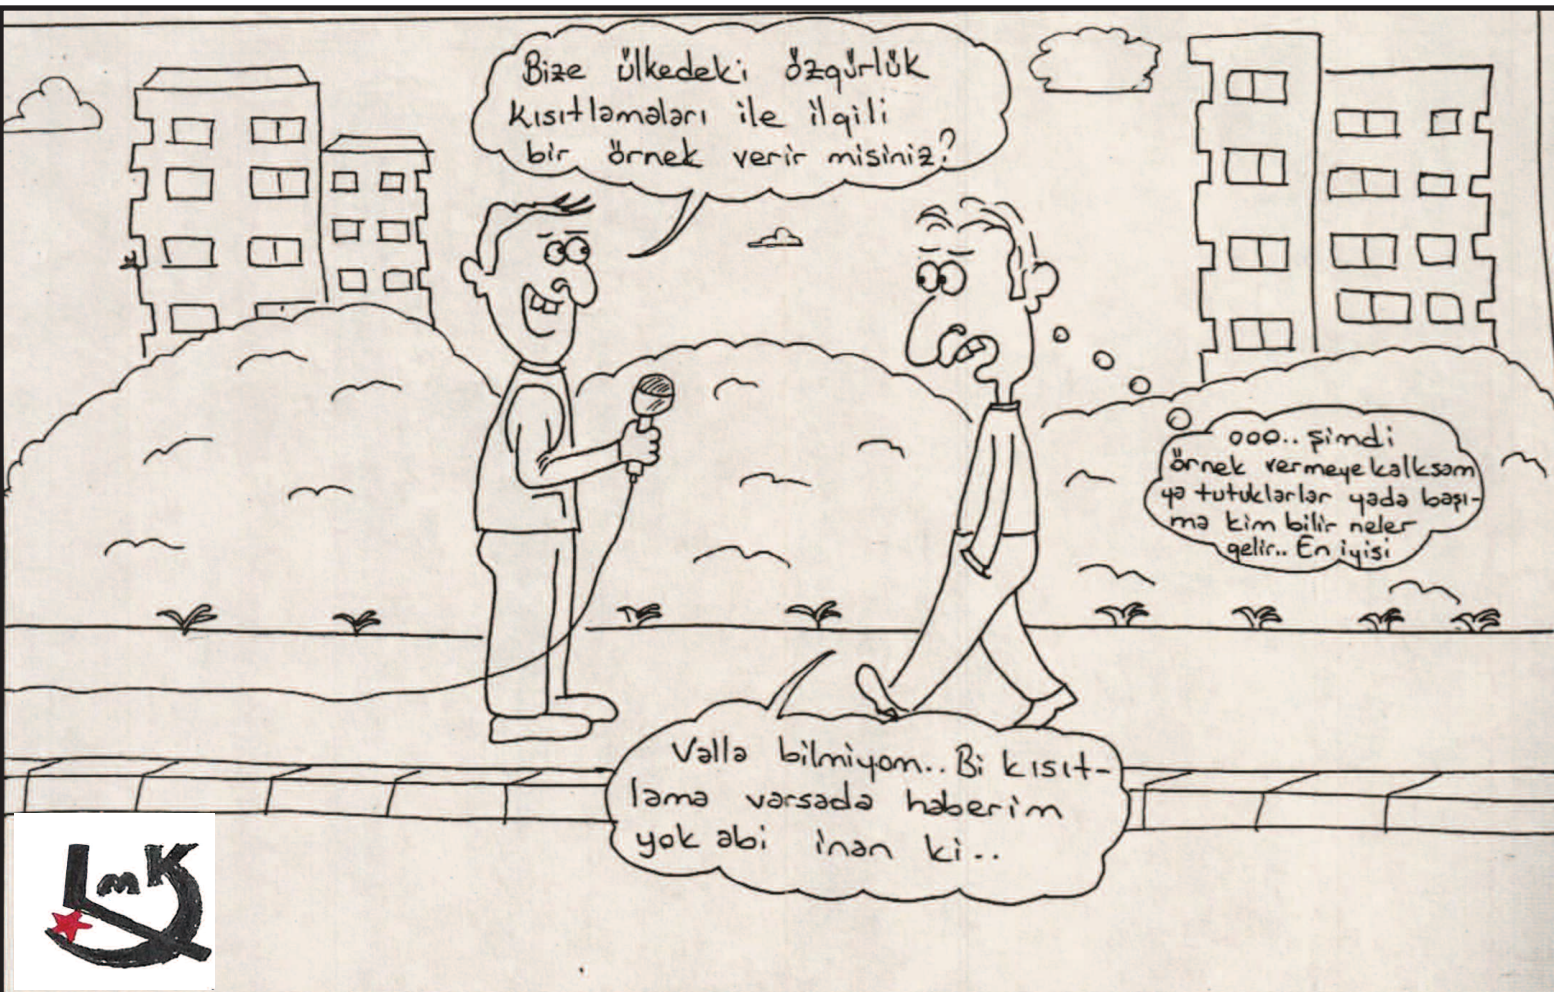 Bize ülkedeki özgürlük
kısıtlamaları ile ilgili
bir örnek verir misiniz?
ooo.. şimdi
örnek vermeye kalksam
ya tutuklarlar yada başı-
ma kim bilir neler
gelir.. En iyisi
Valla bilmiyom.. Bi kısıt-
lama varsada haberim
yok abi inan ki..
LmK